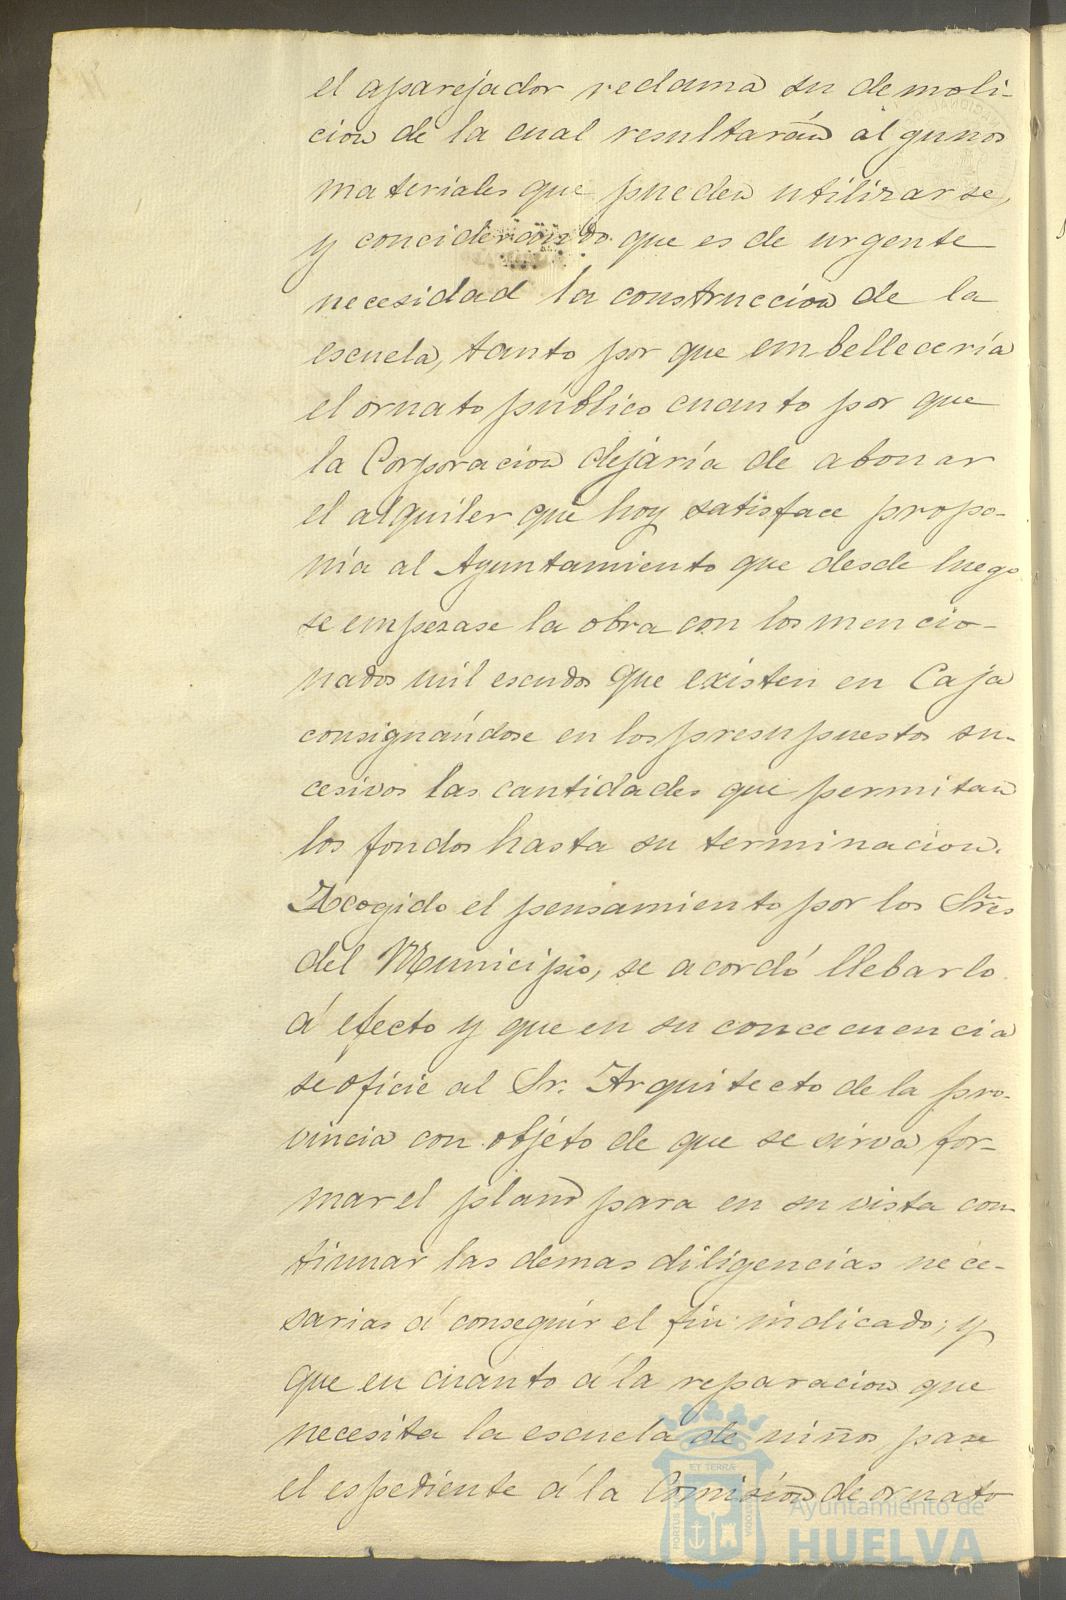 el aparejador reclama su demoli-
cion de la cual resultarán algunos
materiales que pueden utilizarse,
y conciderando que es de urgente
necesidad la construccion de la
escuela, tanto por que embellecería
el ornato público cuanto por que
la Corporacion dejaría de abonar
el alquiler que hoy satisface propo-
nía al Ayuntamiento que desde luego
se empezase la obra con los mencio-
nados mil escudos que existen en Caja
consignándose en los presupuestos su-
cesivos las cantidades que permitan
los fondos hasta su terminacion.
Acogido el pensamiento por los Sres
del Municipio, se acordó llebarlo
á efecto y que en su concecuencia
se oficie al Sr. Arquitecto de la pro-
vincia con objeto de que se sirva for-
mar el plano para en su vista con-
tinuar las demas diligencias nece-
sarias á conseguir el fin indicado; y
que en cuanto á la reparacion que
necesita la escuela de niños pase
el espediente á la Comisión de ornato
ET TERRÆ
PORTUS
CUSTODIA
Ayuntamiento de
HUELVA